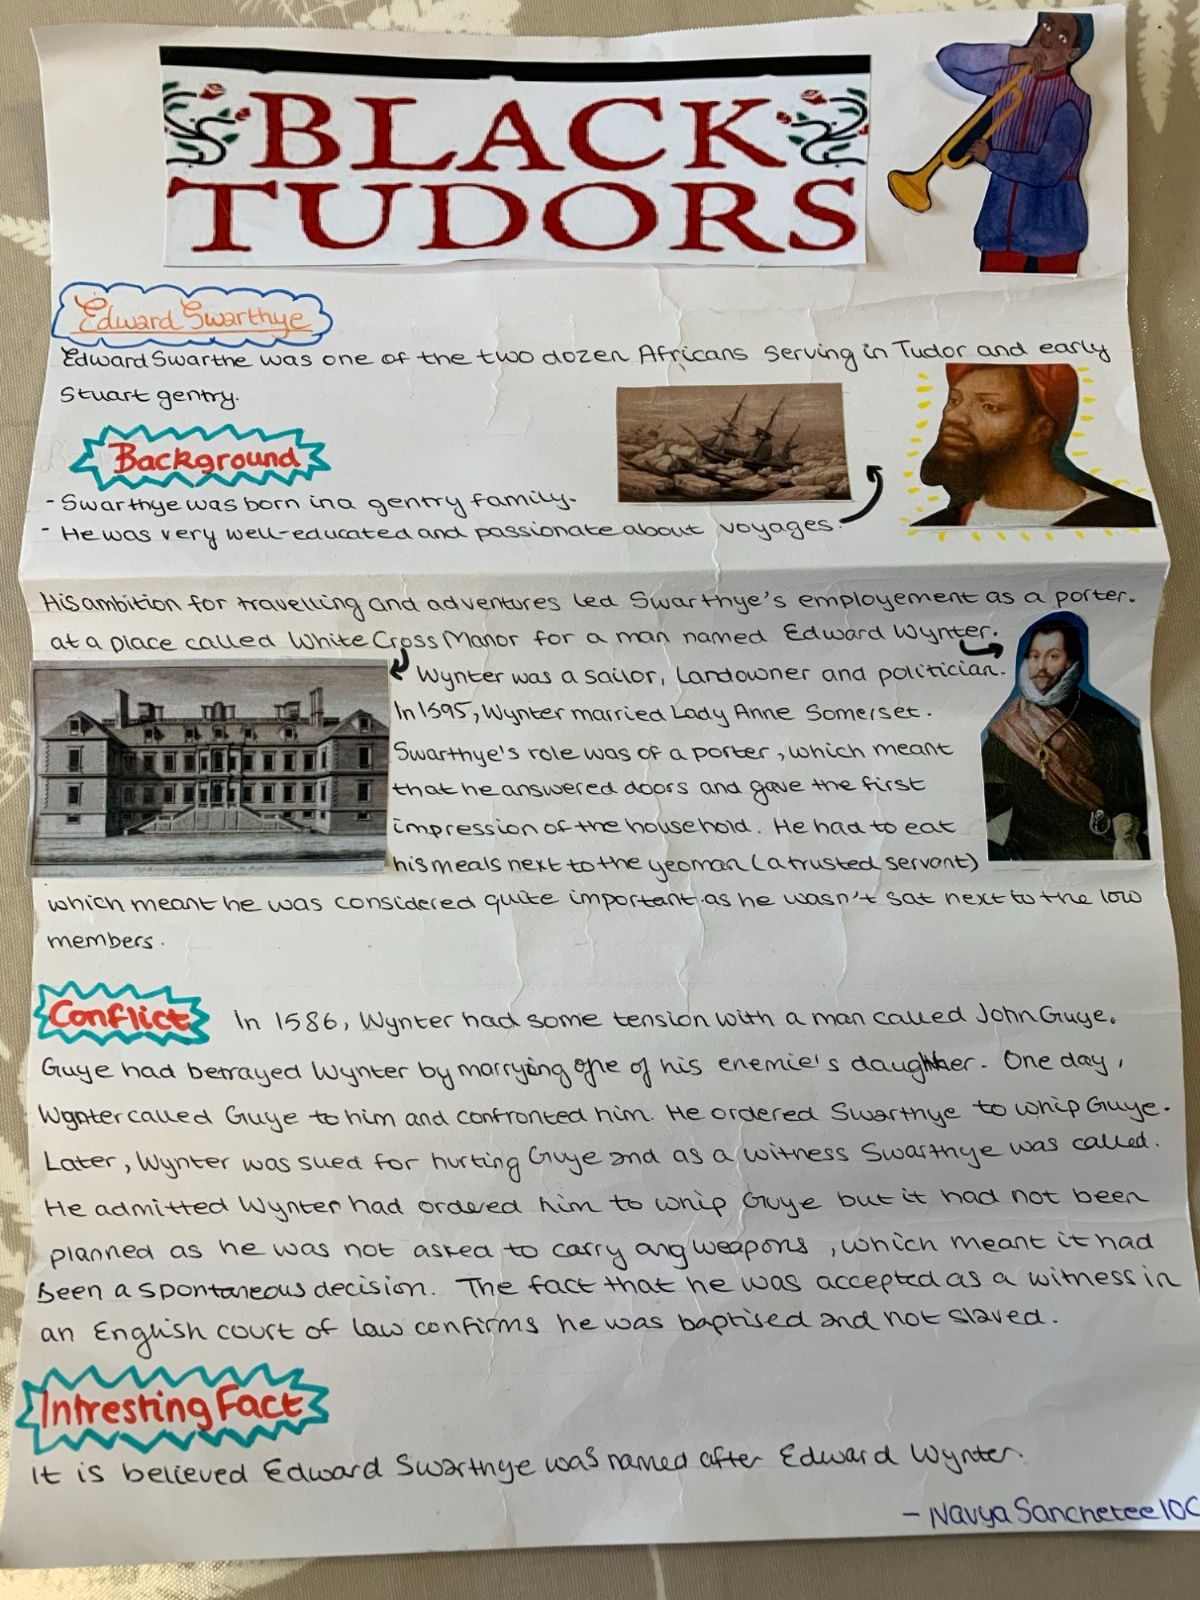 BLACK
TUDORS
Edward Swarthye
Edward Swarthe was one of the two dozen Africans serving in Tudor and early
Stuart gentry.
Background
- Swarthye was born in a gentry family.
- He was very well-educated and passionate about voyages.
His ambition for travelling and adventures led Swarthye's employement as a porter.
at a place called White Cross Manor for a man named Edward Wynter.
Wynter was a sailor, Landowner and politician.
In 1595, Wynter married Lady Anne Somerset.
Swarthye's role was of a porter, which meant
that he answered doors and gave the first
impression of the household. He had to eat
his meals next to the yeoman (a trusted servant)
which meant he was considered quite important as he wasn't sat next to the low
members.
Conflict In 1586, Wynter had some tension with a man called John Guye.
Guye had betrayed Wynter by marrying one of his enemie's daughter. One day,
Wynter called Guye to him and confronted him. He ordered Swarthye to whip Guye.
Later, Wynter was sued for hurting Guye and as a witness Swarthye was called.
He admitted Wynter had ordered him to whip Guye but it had not been
planned as he was not asked to carry any weapons, which meant it had
been a spontaneous decision. The fact that he was accepted as a witness in
an English court of law confirms he was baptised and not slaved.
Intresting Fact
it is believed Edward Swarthye was named after Edward Wynter.
- Navya Sanchetee 10C